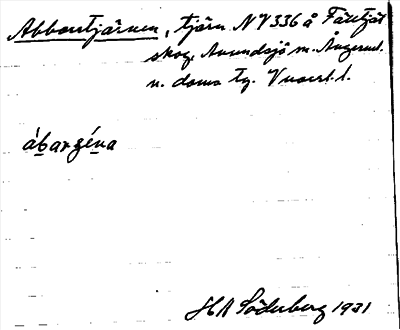 Abborrtjärnen, tjärn NV336 å Fälltjäl
skog, Anundsjö sn. Ångerml.
n. doms tg. Vnorrl. l.
ábargéna
HA Söderberg 1931